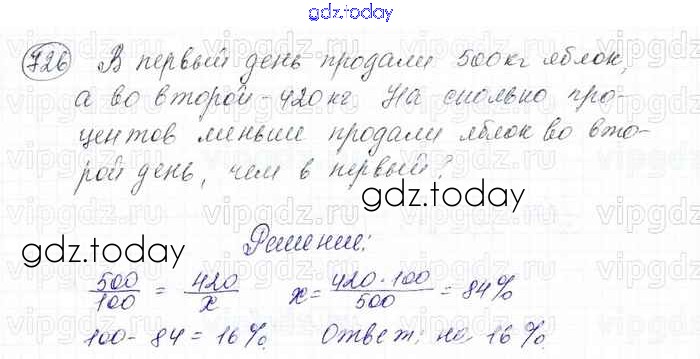 gdz.today
726 В первый день продали 500 кг яблок,
а во второй - 420 кг. На сколько про-
центов меньше продали яблок во вто-
рой день, чем в первый?
gdz.today
gdz.today
Решение:
500/100 = 420/x x = 420·100/500 = 84%
100 - 84 = 16%. Ответ: на 16%.